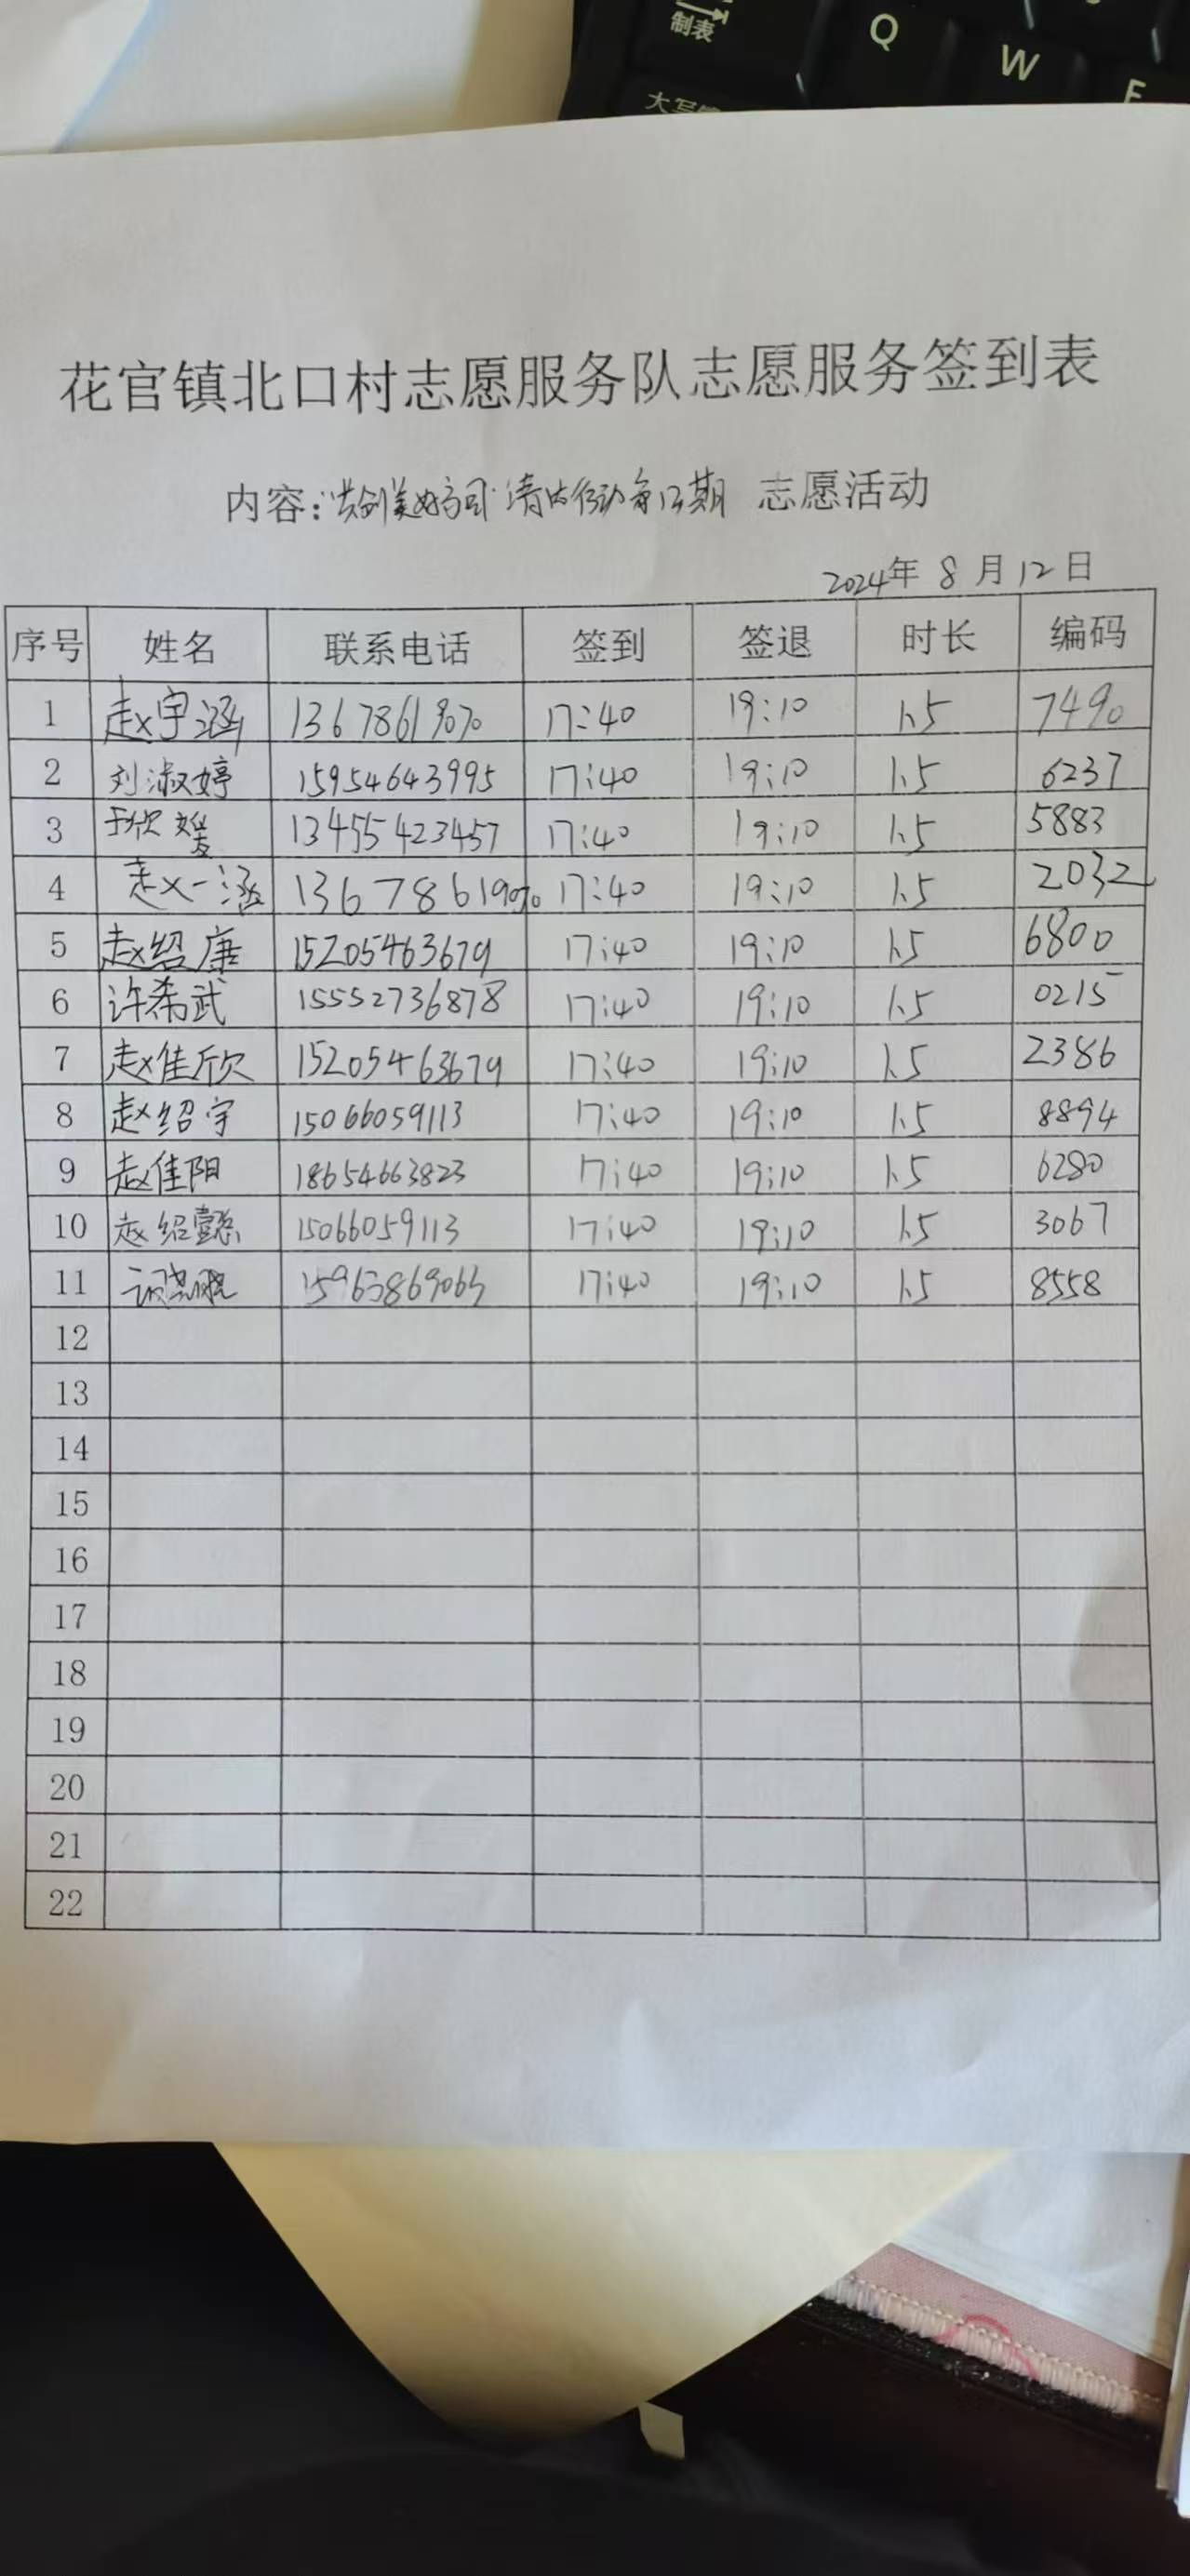 制表
Q
W
E
大写
花官镇北口村志愿服务队志愿服务签到表
内容:"共创美好家园 清洁行动每日期 志愿活动
2024年 8 月 12 日
序号 姓名 联系电话 签到 签退 时长 编码
1 赵宇涵 13678619070 17:40 19:10 1.5 7490
2 刘淑婷 15954643995 17:40 19:10 1.5 6237
3 于欣媛 13455423457 17:40 19:10 1.5 5883
4 赵一涵 13678619070 17:40 19:10 1.5 2032
5 赵绍康 15205463679 17:40 19:10 1.5 6800
6 许希武 15552736878 17:40 19:10 1.5 0215
7 赵佳欣 15205463679 17:40 19:10 1.5 2386
8 赵绍宇 15066059113 17:40 19:10 1.5 8894
9 赵佳阳 18654663823 17:40 19:10 1.5 6280
10 赵绍懿 15066059113 17:40 19:10 1.5 3067
11 17:40 19:10 1.5 8558
12
13
14
15
16
17
18
19
20
21
22